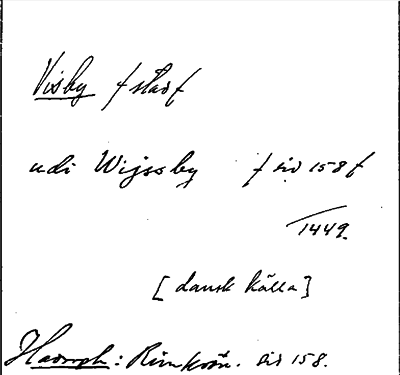 Visby f stad f
udi Wijssby f sid 158 f
1449.
[dansk källa]
Hadorph: Rimkrön. sid 158.